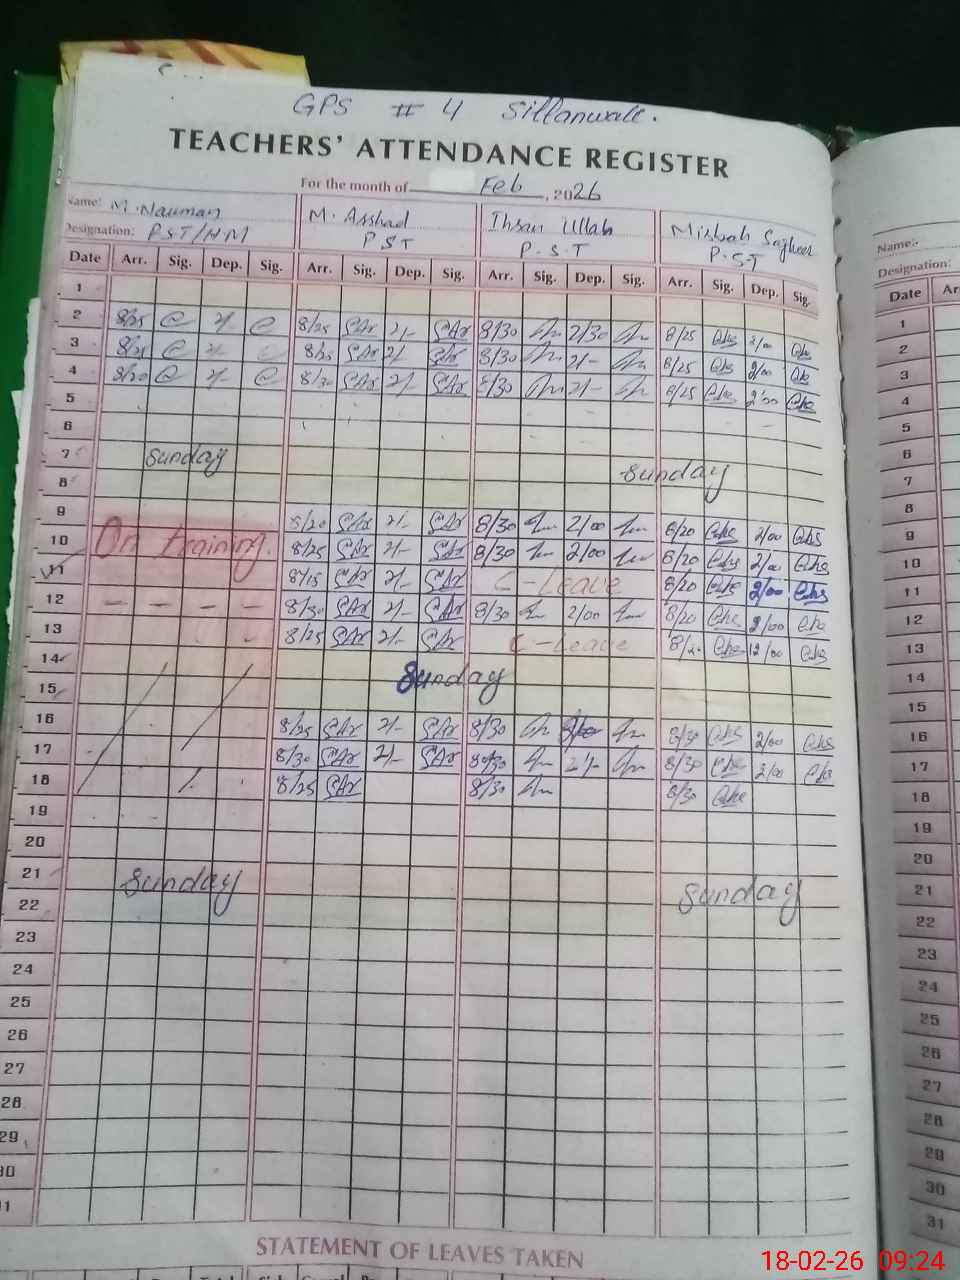 GPS # 4 Sillanwali.
TEACHERS' ATTENDANCE REGISTER
For the month of Feb, 2026
Name: M. Nauman M. Asshad Ihsan Ullah Misbah Sagheer
Designation: PST/HM PST P.S.T P.S.T
Date Arr. Sig. Dep. Sig. Arr. Sig. Dep. Sig. Arr. Sig. Dep. Sig. Arr. Sig. Dep. Sig.
1
2 8/25 2/- 8/25 2/- 8/30 2/30 8/25 2/00
3 8/25 2/- 8/25 2/- 8/30 2/- 8/25 2/00
4 8/30 2/- 8/30 2/- 8/30 2/- 8/25 2/00
5
6
7 Sunday Sunday
8
9 8/20 2/- 8/30 2/00 8/20 2/00
10 On training. 8/25 2/- 8/30 2/00 8/20 2/00
11 8/15 2/- C-Leave 8/20 2/00
12 - - - - 8/30 2/- 8/30 2/00 8/20 2/00
13 8/25 2/- C-Leave 12/00
14 Sunday
15
16 8/25 2/- 8/30 8/30 2/00
17 8/30 2/- 8/30 2/- 8/30 2/00
18 8/25 8/30 8/30
19
20
21 Sunday Sunday
22
23
24
25
26
27
28
29
30
31
STATEMENT OF LEAVES TAKEN
Name:-
Designation:
Date
1
2
3
4
5
6
7
8
9
10
11
12
13
14
15
16
17
18
19
20
21
22
23
24
25
26
27
28
29
30
31
18-02-26 09:24